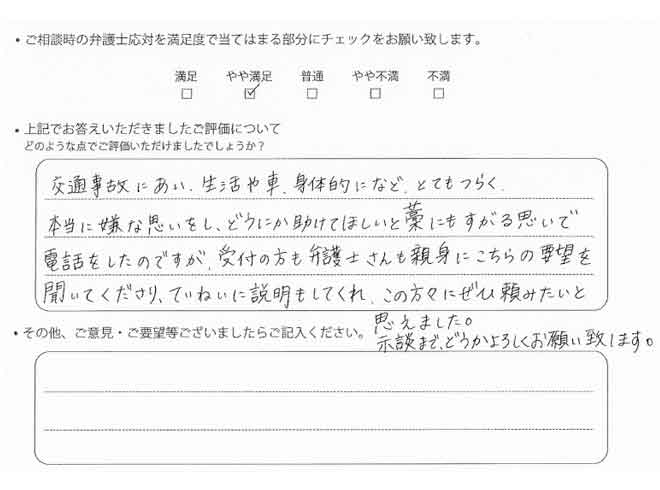 ・ご相談時の弁護士応対を満足度で当てはまる部分にチェックをお願い致します。
満足 やや満足 普通 やや不満 不満
□ ☑ □ □ □
・上記でお答えいただきましたご評価について
どのような点でご評価いただけましたでしょうか？
交通事故にあい、生活や車、身体的になど、とてもつらく、
本当に嫌な思いをし、どうにか助けてほしいと藁にもすがる思いで
電話をしたのですが、受付の方も弁護士さんも親身にこちらの要望を
聞いてくださり、ていねいに説明もしてくれ、この方々にぜひ頼みたいと
思えました。
・その他、ご意見・ご要望等ございましたらご記入ください。
示談まで、どうかよろしくお願い致します。